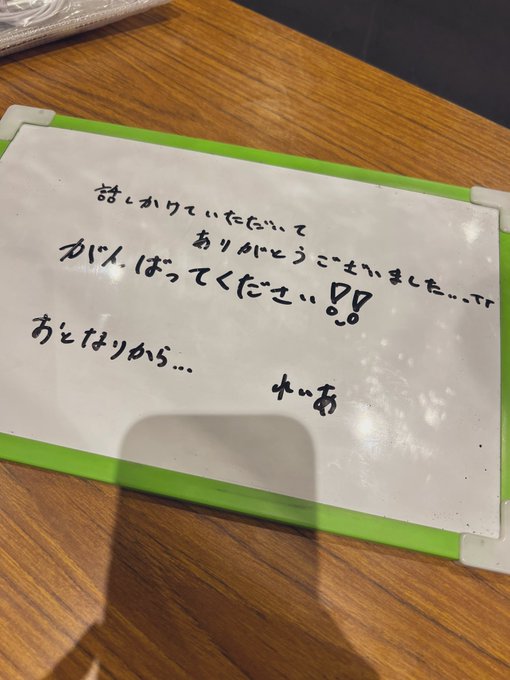 話しかけていただいて
ありがとうございました...
がんばってください!!
おとなりから...
れいあ